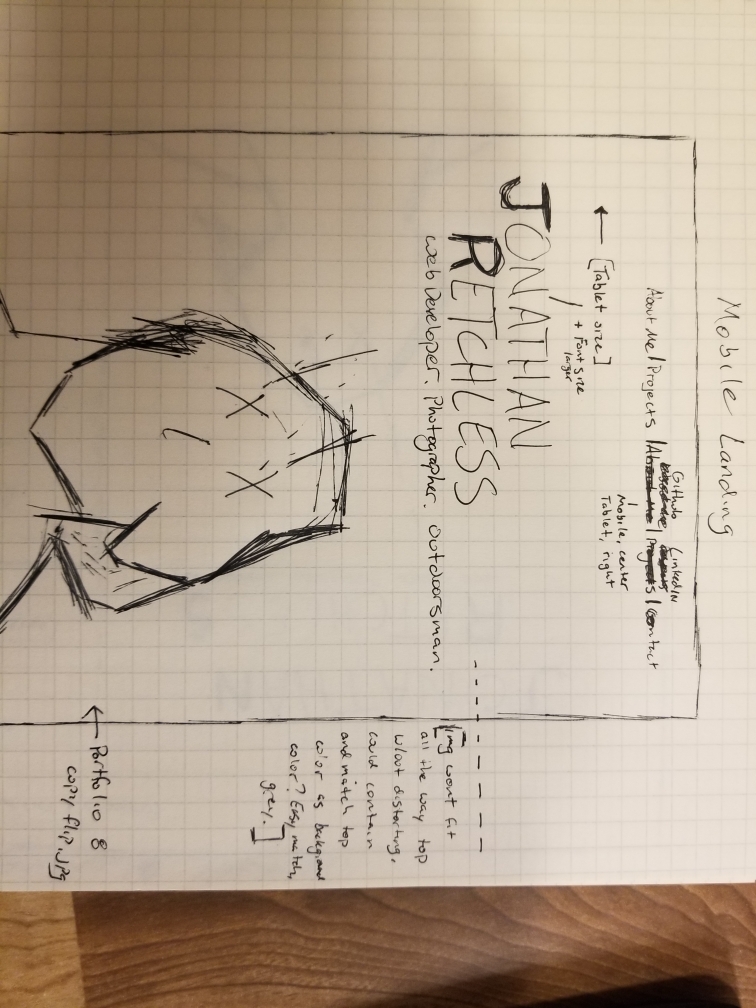 Mobile Landing
Github LinkedIN
About Me / Projects / Contact
Mobile, center
Tablet, right
← [Tablet size]
+ Font size
larger
JONATHAN
RETCHLESS
Web Developer. Photographer. Outdoorsman.
[img wont fit
all the way top
w/out distorting,
could contain
and match top
color as background
color? Easy match,
grey.]
← Portfolio 8
copy flip.jpg